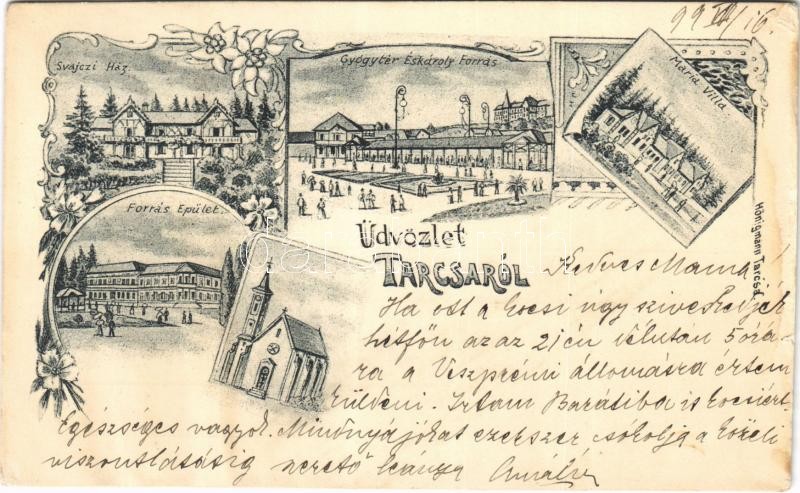 99 VIII/16.
Svájczi Ház.
Gyógytér És Károly Forrás
Mária Villa
Forrás Épület.
Hönigmann Tarcsa
Üdvözlet
TARCSARÓL
Kedves Mama!
Ha ott a kocsi úgy sziveskedjék
hétfőn azaz 21én délután 5 órá-
ra a Veszprémi állomásra értem
küldeni. Irtam Barátiba is kocsiért.
Egészséges vagyok. Mindnyájókat ezerszer csókolja a közeli
viszontlátásig szerető leánya Amália